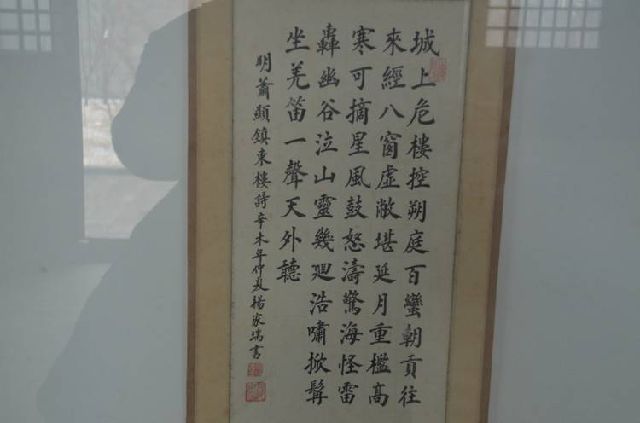 城上危樓控朔庭百蠻朝貢往
來經八窗虛敞堪延月重檻高
寒可摘星風鼓怒濤驚海怪雷
轟幽谷泣山靈幾廻浩嘯掀髯
坐羌笛一聲天外聽
明蕭顯鎮東樓詩辛未年仲友楊家瑞書